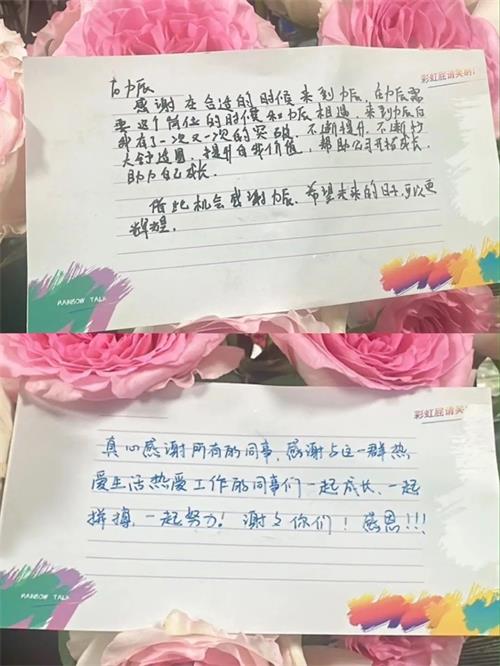 彩虹屁请笑纳!
to 力辰
感谢在合适的时候来到力辰,在力辰需
要这个岗位的时候和力辰相遇,来到力辰后
我有了一次又一次的突破,不断提升,不断扩
大舒适圈,提升自我价值,帮助公司开拓成长,
助力自己成长.
借此机会感谢力辰.希望未来的日子可以更
辉煌.
RAINBOW TALK
彩虹屁请笑
真心感谢所有的同事,感谢与这一群热
爱生活热爱工作的同事们一起成长、一起
拼搏,一起努力!谢谢你们!感恩!!!
RAINBOW TALK